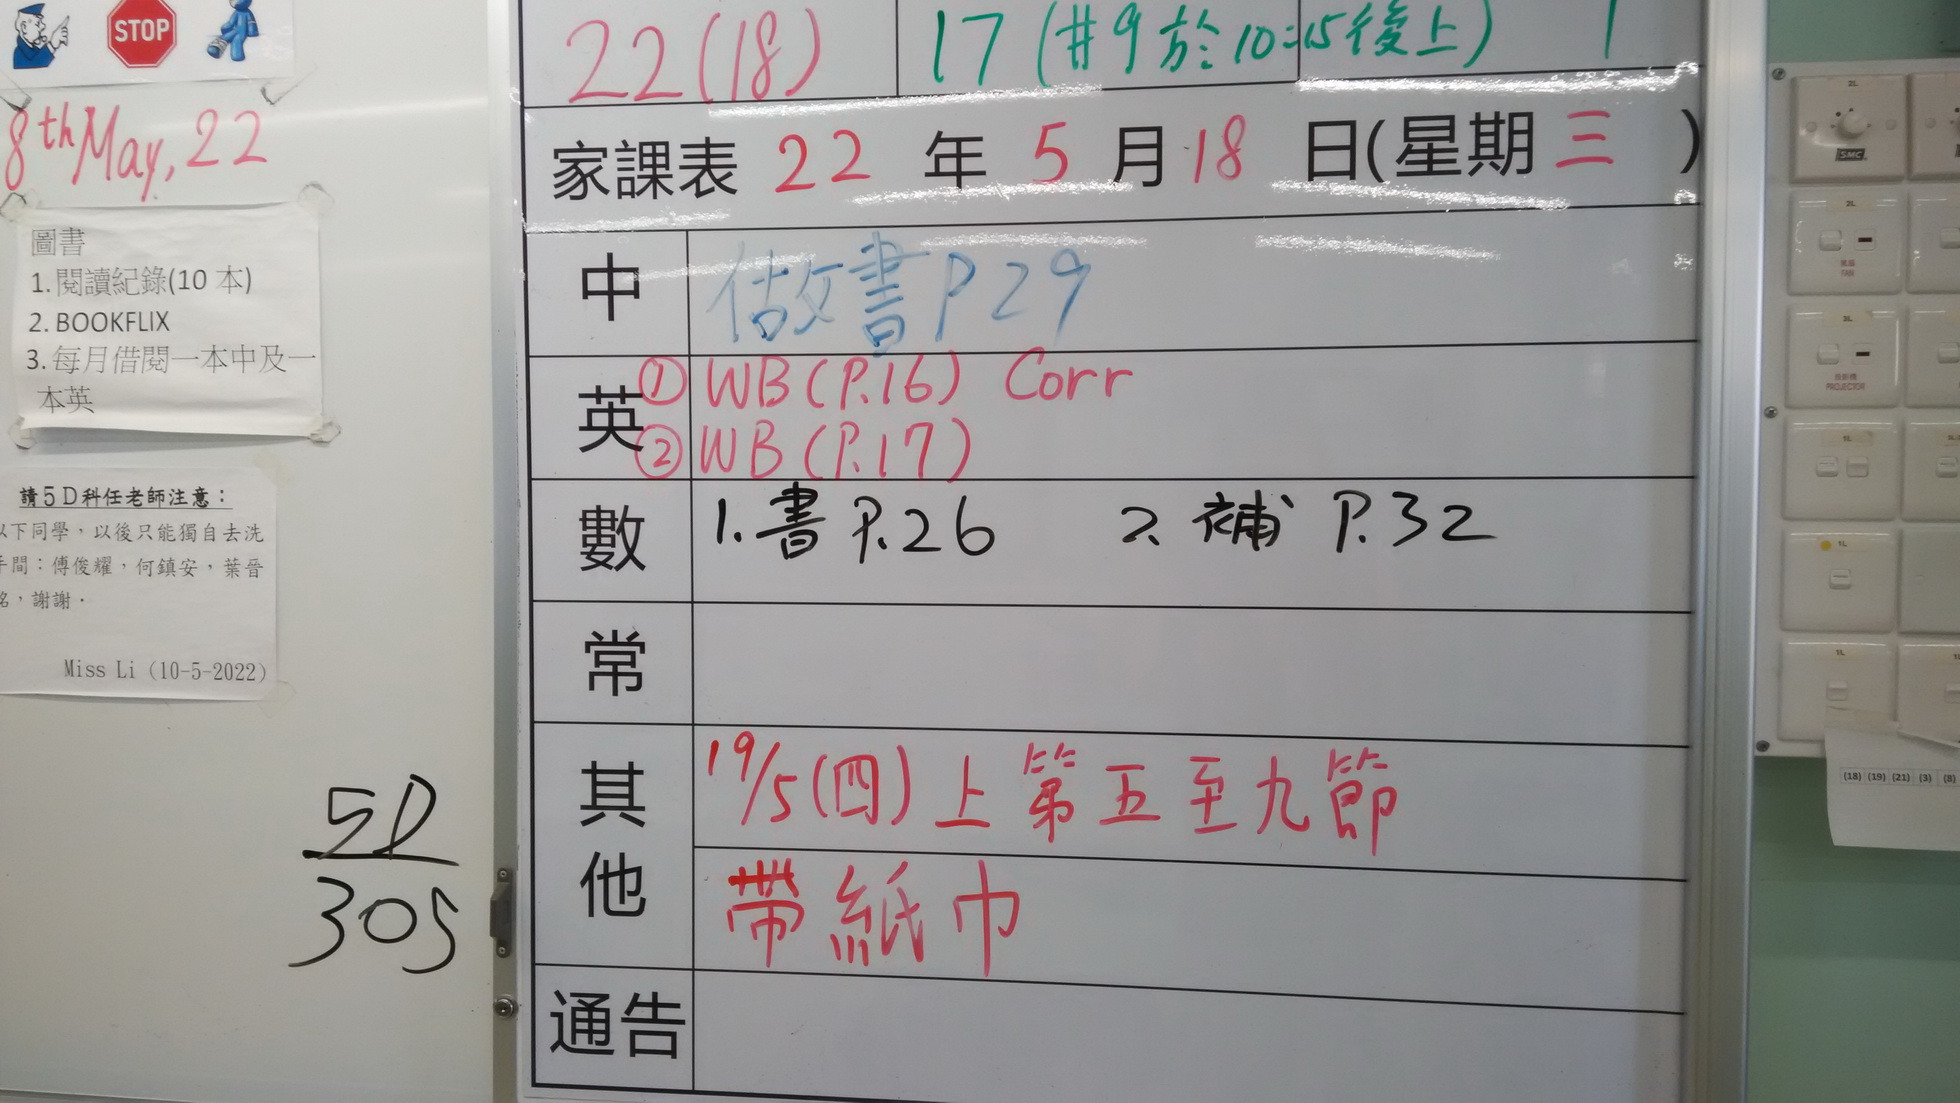 STOP
8th May, 22
圖書
1. 閱讀紀錄(10 本)
2. BOOKFLIX
3. 每月借閱一本中及一
本英
請5D科任老師注意：
以下同學，以後只能獨自去洗
手間：傅俊耀，何鎮安，葉晉
銘，謝謝．
Miss Li (10-5-2022)
5D
305
22(18)
17 (#9於10:15後上)
1
家課表 22 年 5 月 18 日(星期 三 )
中
做書P29
英
① WB (P.16) Corr
② WB (P.17)
數
1. 書 P.26 2. 補 P.32
常
其他
19/5(四)上第五至九節
帶紙巾
通告
2L
SMC
2L
風扇
FAN
3L
投影機
PROJECTOR
1L
1L
1L
(18) (19) (21) (3) (8)